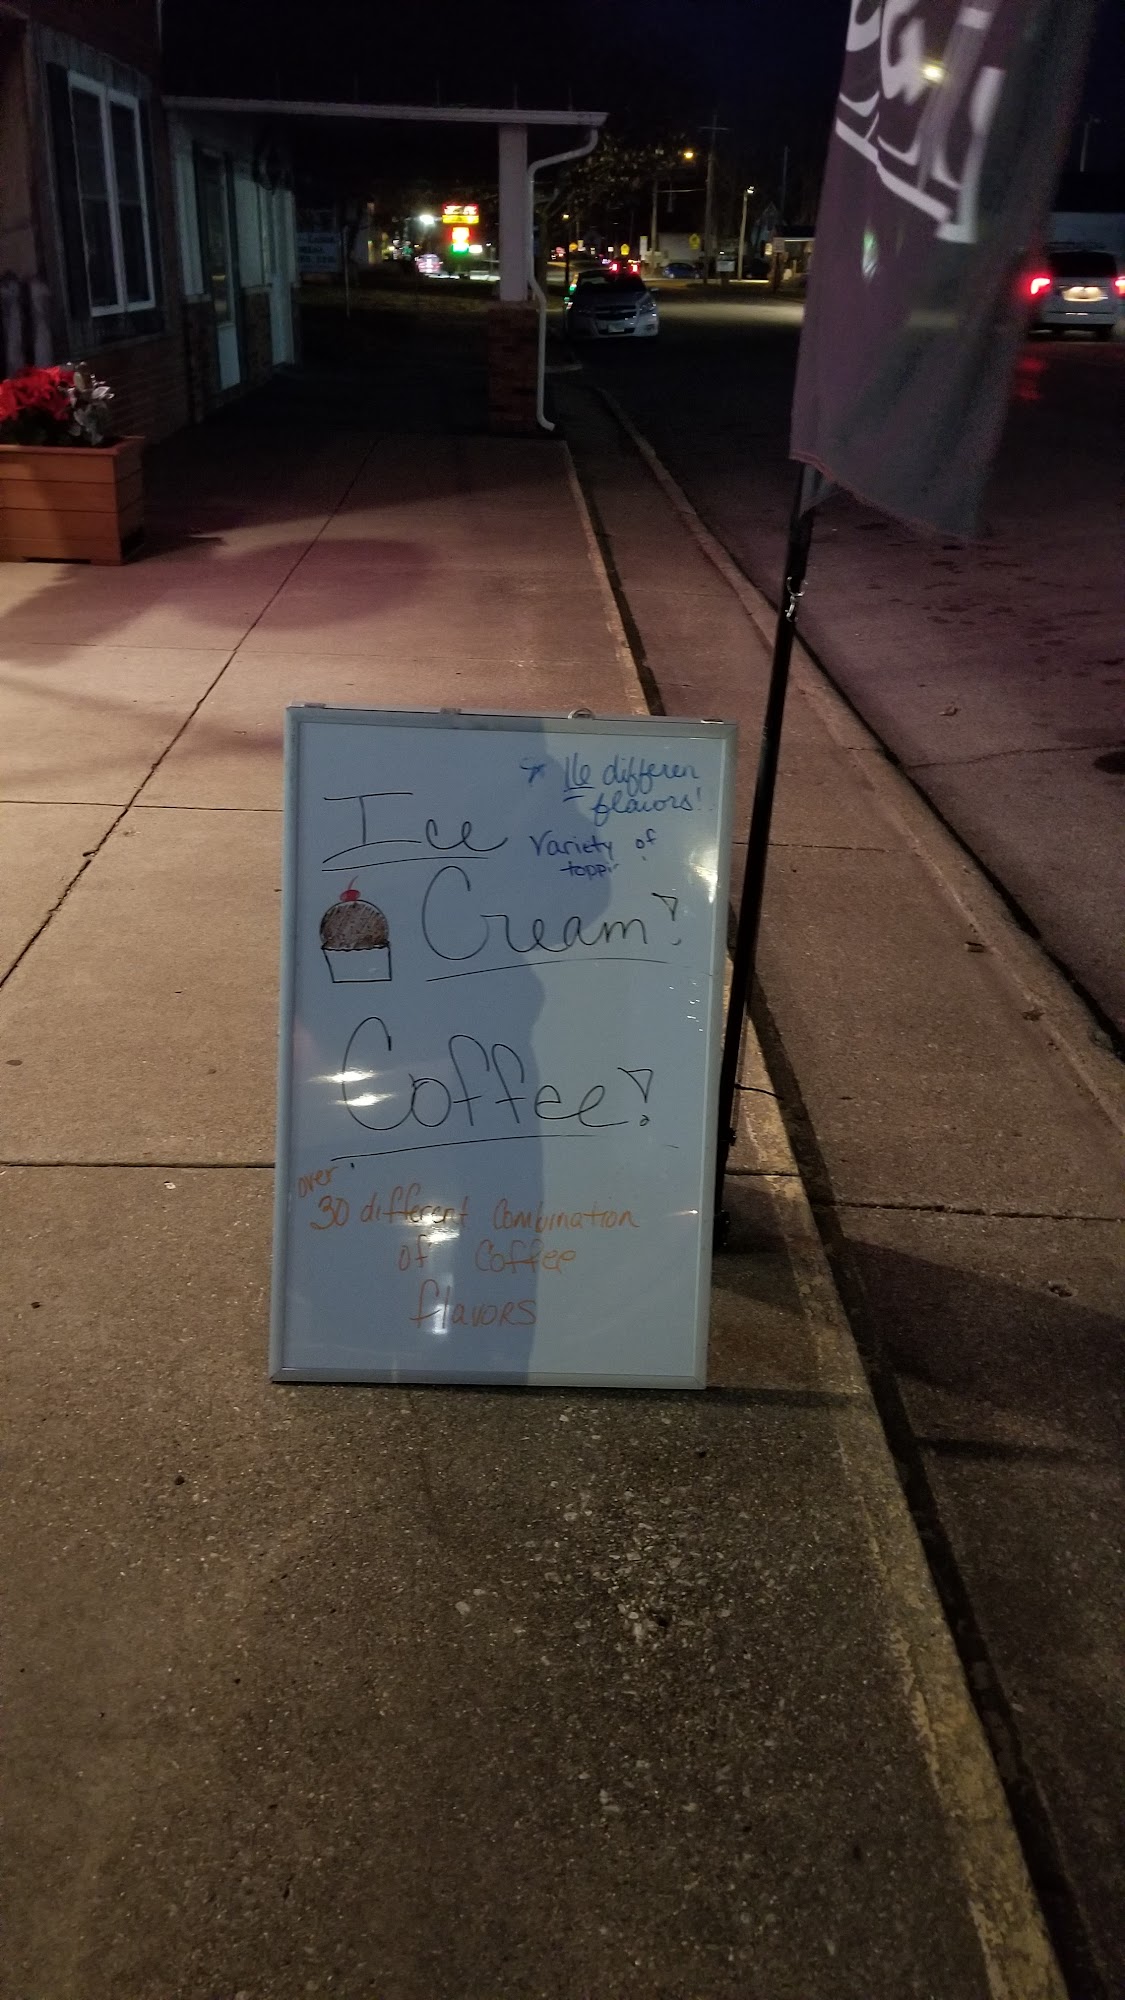 * 16 differen
flavors!
Ice
Variety of
toppi
Cream!
Coffee!
over
30 different Combination
of Coffee
flavors